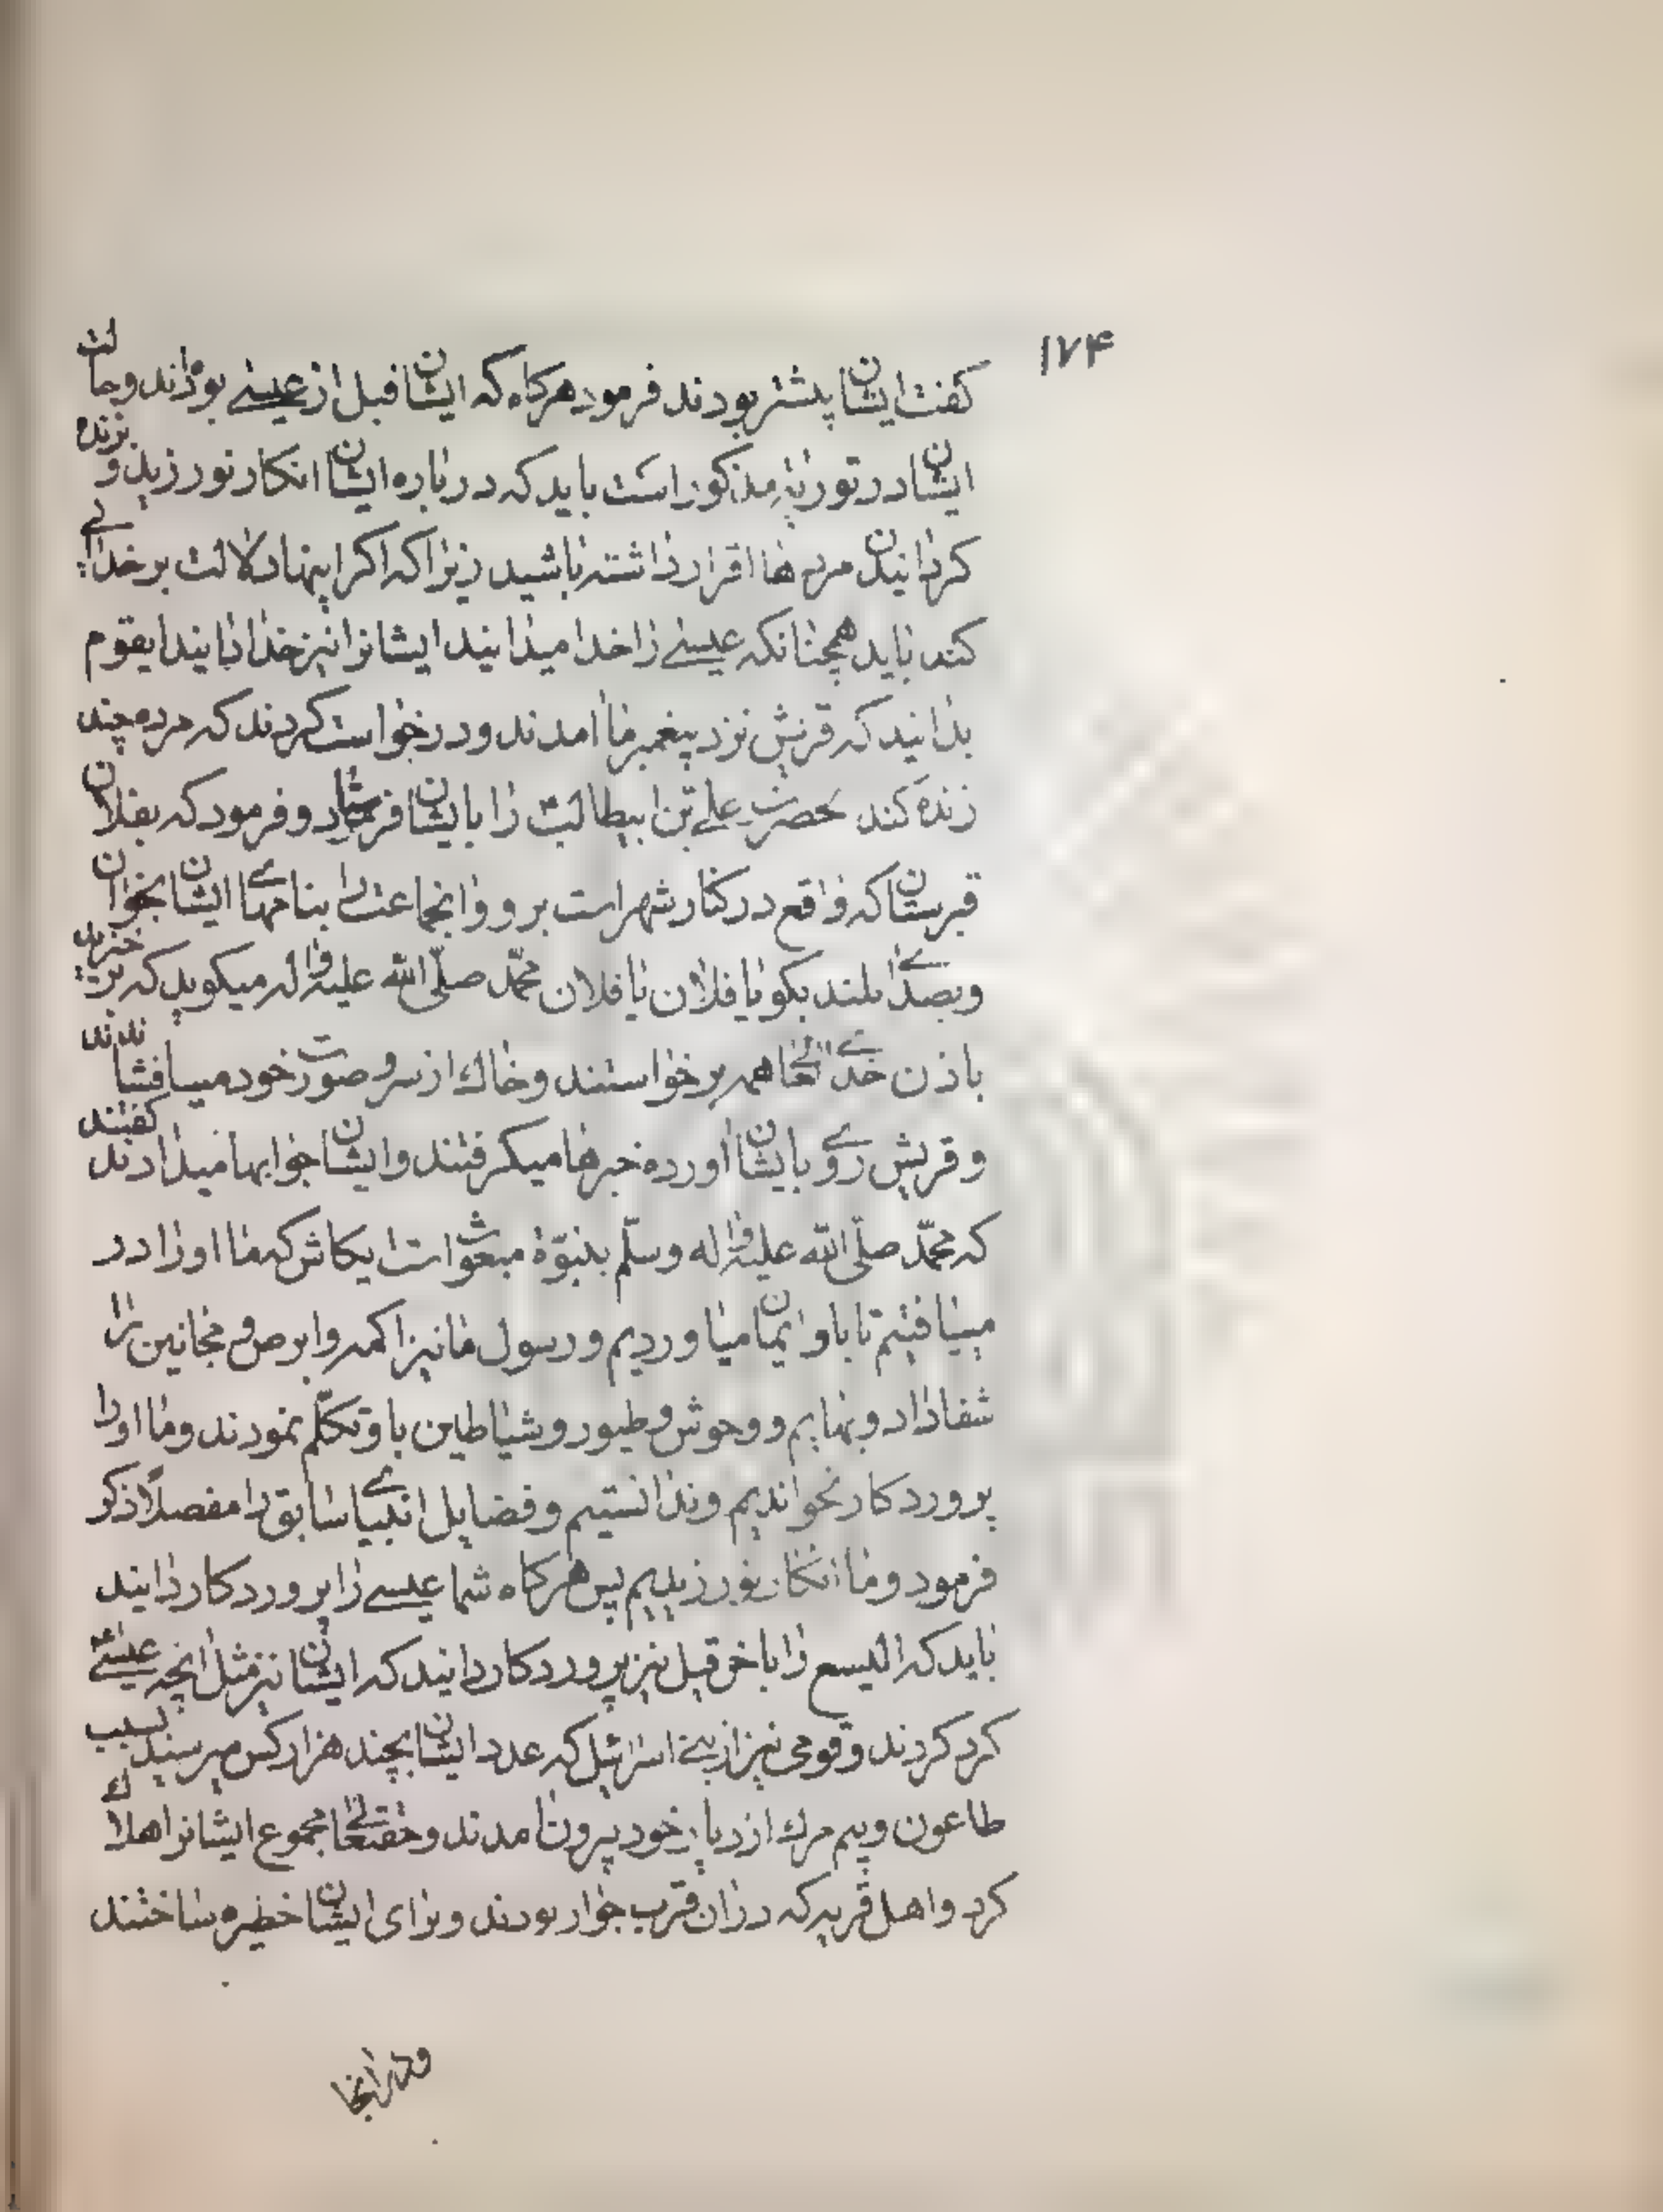 ۱۷۴
کفت ایشان پیشتر بودند فرمود هرکاه که ایشان قبل از عیسے بوده‌اند و حالت
ایشان در توریة مذکور است باید که درباره ایشان انکار نورزید و بزنده
کردانیدن مرده‌ها اقرار داشته باشید زیرا که اکر اینها دلالت بر خدائے
کند باید همچنانکه عیسے را خدا میدانید ایشانرا نیز خدا دانید ایقوم
بدانید که قریش نزد پیغمبر ما امدند و درخواست کردند که مرده چند
زنده کند حضرت علے بن ابیطالب را بایشان فرستاد و فرمود که بفلان
قبرستان که واقع در کنار شهر است برو و انجماعت را بنامهاے ایشان بخوان
و بصداے بلند بکو یا فلان یا فلان محمّد صلّی الله علیه واله میکوید که برخیزید
باذن خداے تعالے همه برخواستند و خاك از سر و صورت خود میافشاندند
و قریش روے بایشان اورده خبرها میکرفتند و ایشان جوابها میدادند کفتند
که محمّد صلّی الله علیه واله وسلّم بنبوّة مبعوث است ایکاش که ما او را در
مییافتیم تا باو ایمان میاوردیم و رسول ما نیز اکمه و ابرص و مجانین را
شفا داد و بهایم و وحوش و طیور و شیاطین باو تکلّم نمودند و ما او را
پروردکار نخواندیم و ندانستیم و فضایل انبیاے سابق را مفصلاً ذکر
فرمود و ما انکار نورزیدیم پس هرکاه شما عیسے را پروردکار دانید
باید که الیسع را با خرقیل نیز پروردکار دانید که ایشان نیز مثل انچه عیسے
کرد کردند و قومی نیز از بنے اسرائیل که عدد ایشان بچند هزار کس میرسید بسبب
طاعون و بیم مرك از دیار خود بیرون امدند و حقتعالے مجموع ایشانرا هلاك
کرد و اهل قریه که در ان قرب جوار بودند و برای ایشان حظیره ساختند